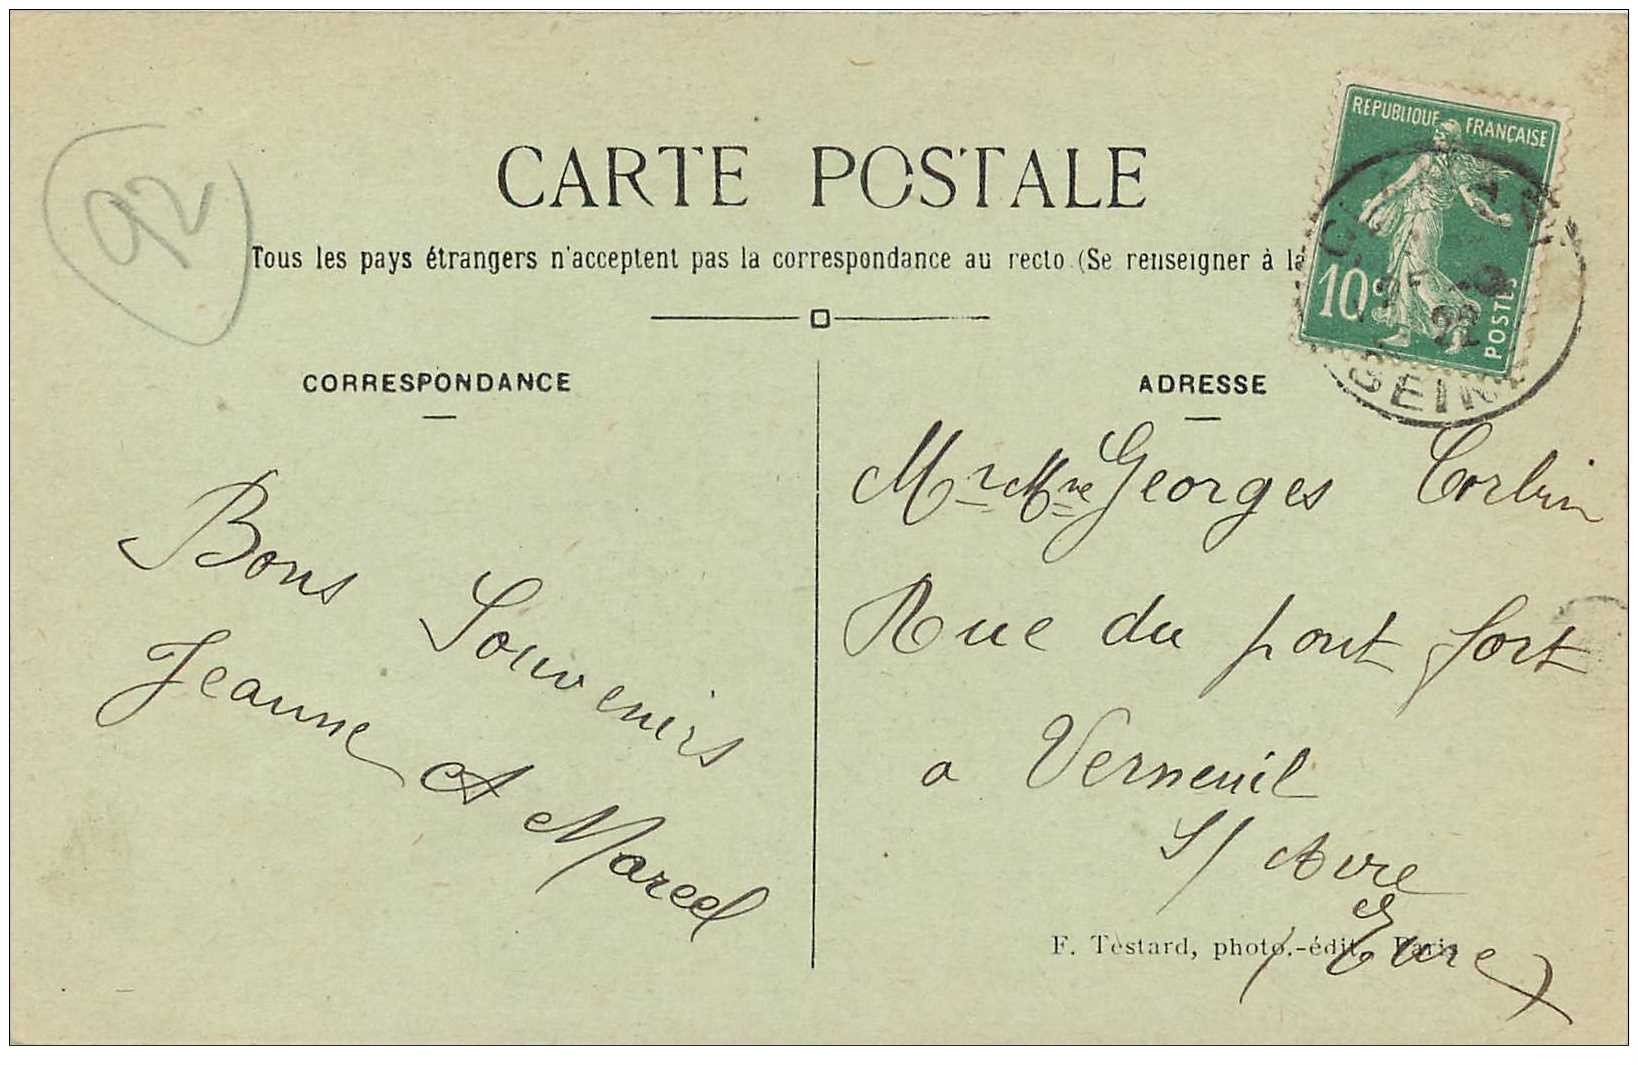 92
CARTE POSTALE
Tous les pays étrangers n'acceptent pas la correspondance au recto (Se renseigner à la
REPUBLIQUE FRANÇAISE
10c
POSTES
22
SEINE
CORRESPONDANCE
Bons Souvenirs
Jeanne et Marcel
ADRESSE
Mr Mme Georges Corbin
Rue du pont fort
a Verneuil
S/ Avre
(Eure)
F. Testard, photo.-édit. Paris